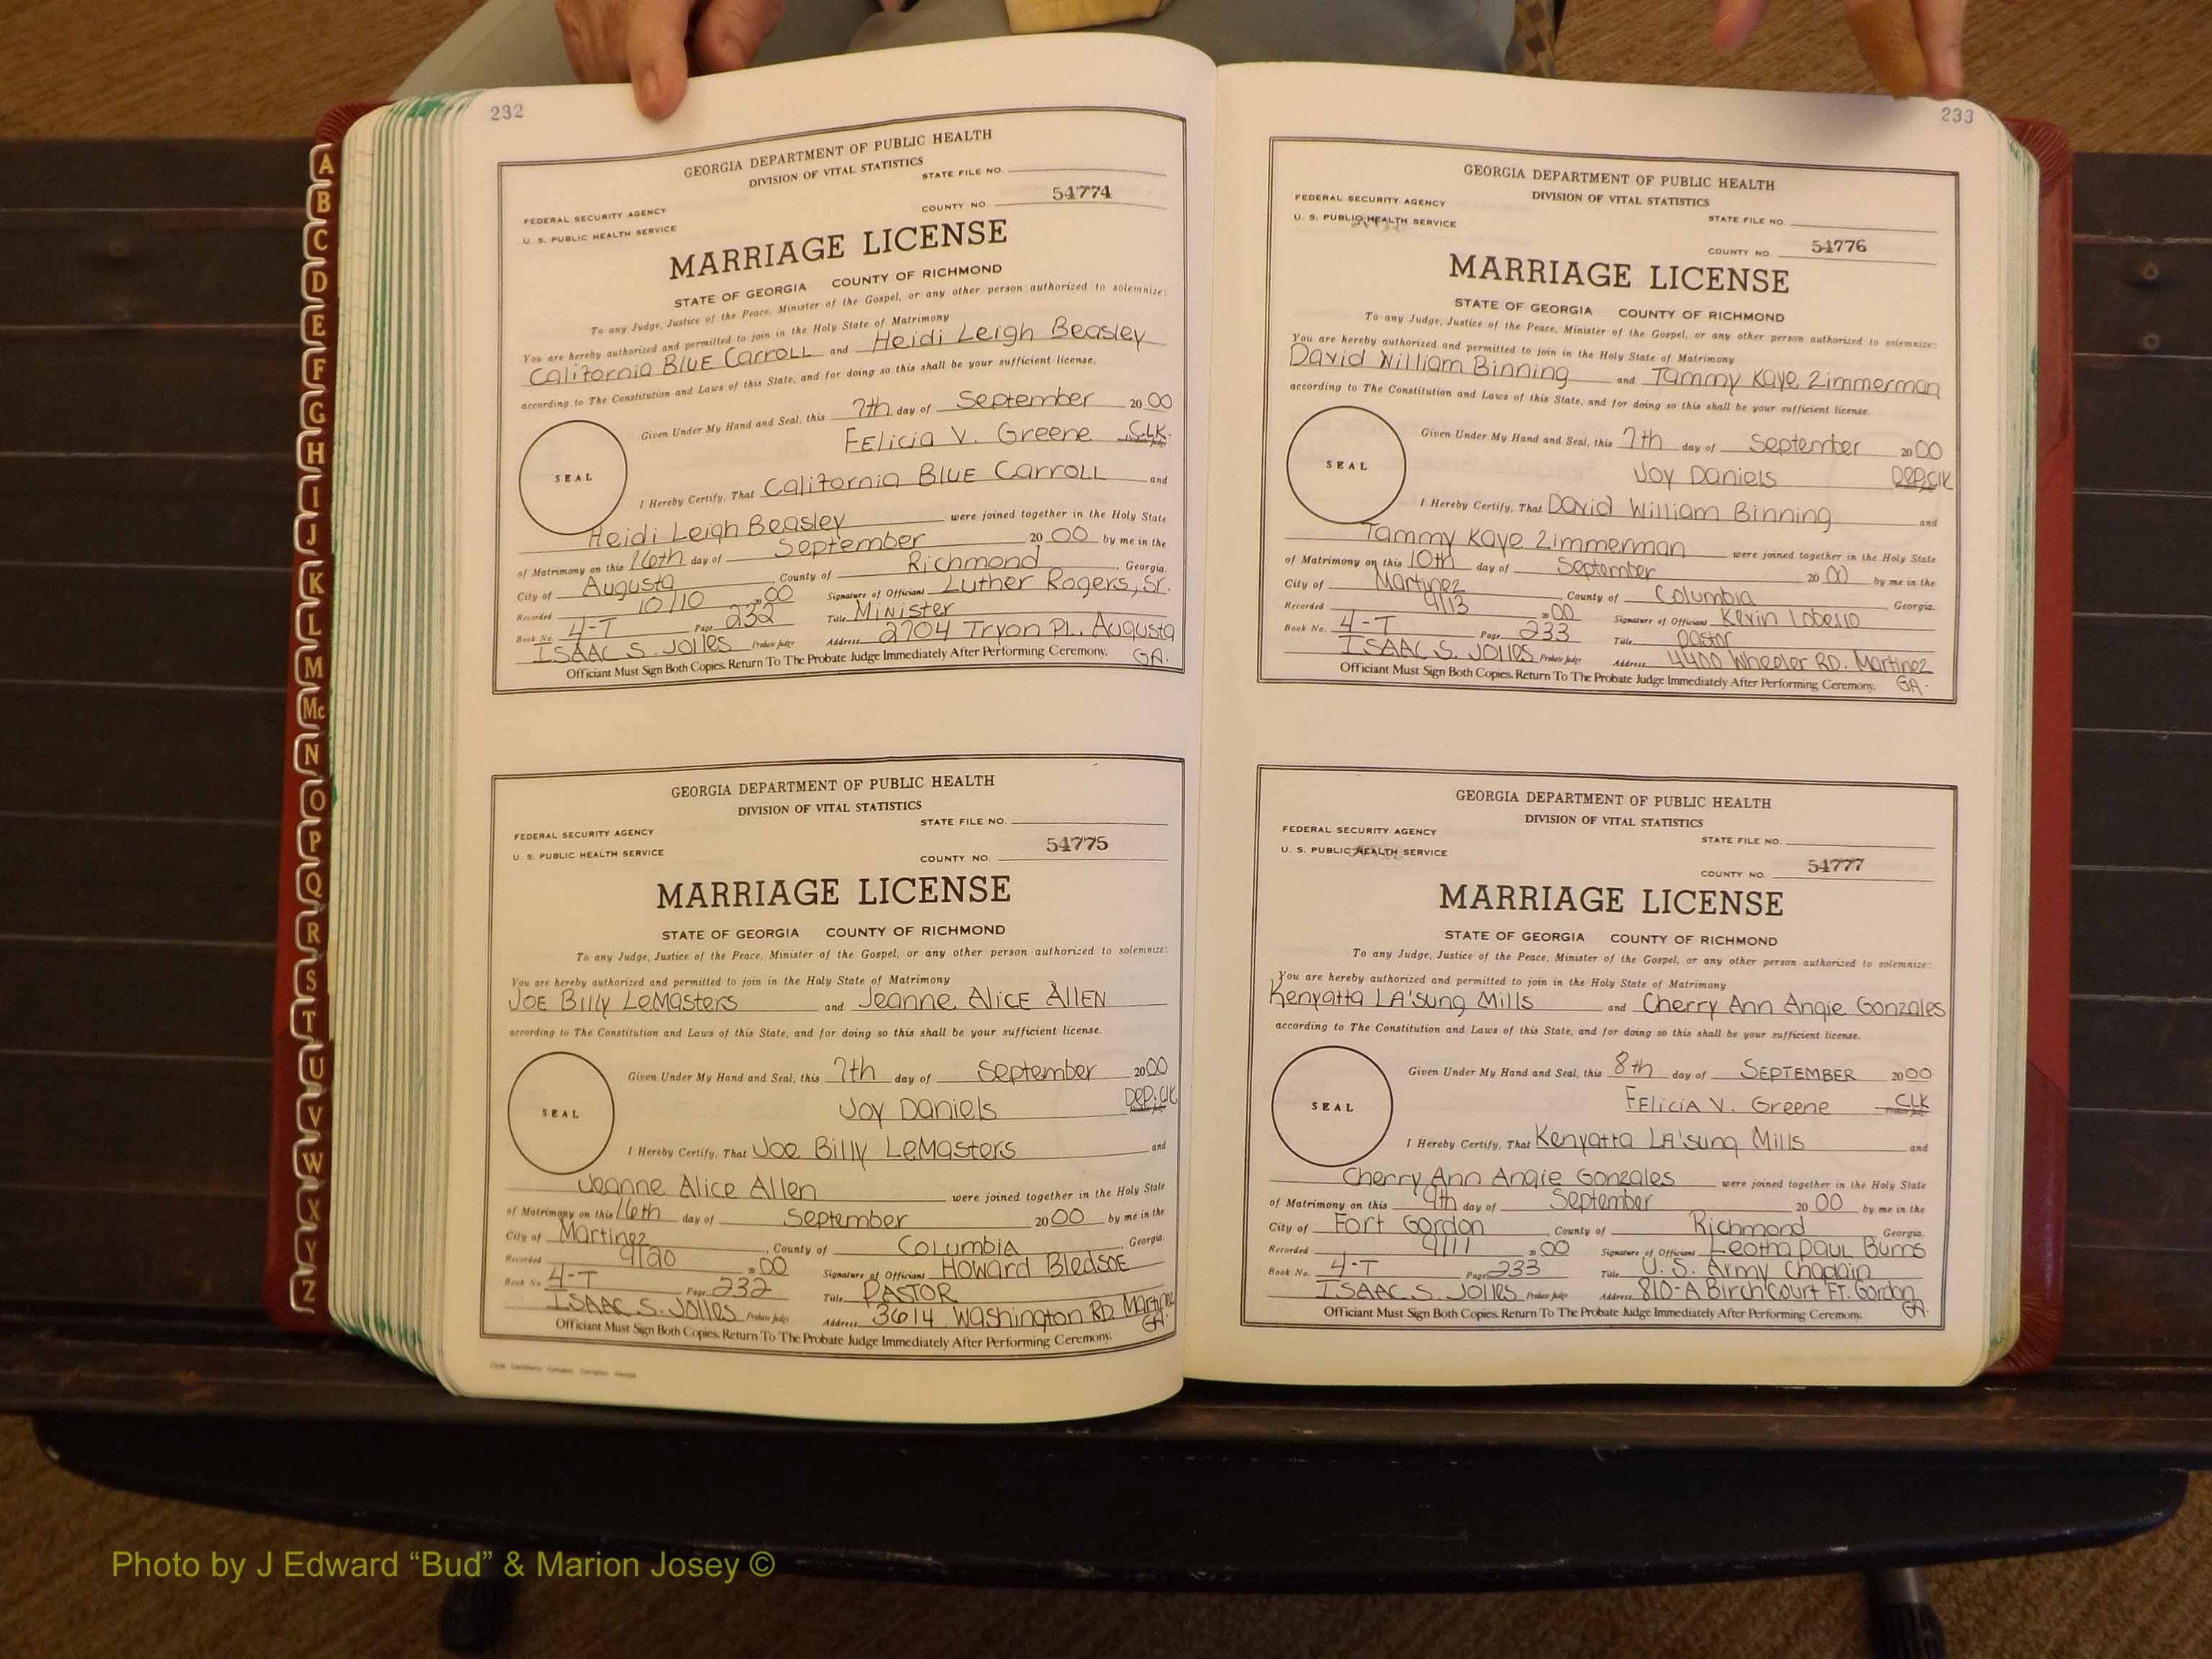 A
B
C
D
E
F
G
H
I
J
K
L
M
Mc
N
O
P
Q
R
S
T
U
V
W
X
Y
Z
232
GEORGIA DEPARTMENT OF PUBLIC HEALTH
DIVISION OF VITAL STATISTICS
STATE FILE NO.
FEDERAL SECURITY AGENCY
U. S. PUBLIC HEALTH SERVICE
COUNTY NO. 54774
MARRIAGE LICENSE
STATE OF GEORGIA COUNTY OF RICHMOND
To any Judge, Justice of the Peace, Minister of the Gospel, or any other person authorized to solemnize:
You are hereby authorized and permitted to join in the Holy State of Matrimony
California BLUE Carroll and Heidi Leigh Beasley
according to The Constitution and Laws of this State, and for doing so this shall be your sufficient license.
Given Under My Hand and Seal, this 7th day of September 20 00
FELicia V. Greene CLK.
SEAL
I Hereby Certify, That California BLUE Carroll and
Heidi Leigh Beasley were joined together in the Holy State
of Matrimony on this 16th day of September 20 00 by me in the
City of Augusta, County of Richmond, Georgia.
Recorded 10/10 20 00 Signature of Officiant Luther Rogers, Sr.
Book No. 4-T Page 232 Title Minister
ISAAC S. Jolles Probate Judge Address 2704 Tryon Pl., Augusta
GA.
Officiant Must Sign Both Copies. Return To The Probate Judge Immediately After Performing Ceremony.
GEORGIA DEPARTMENT OF PUBLIC HEALTH
DIVISION OF VITAL STATISTICS
STATE FILE NO.
FEDERAL SECURITY AGENCY
U. S. PUBLIC HEALTH SERVICE
COUNTY NO. 54775
MARRIAGE LICENSE
STATE OF GEORGIA COUNTY OF RICHMOND
To any Judge, Justice of the Peace, Minister of the Gospel, or any other person authorized to solemnize:
You are hereby authorized and permitted to join in the Holy State of Matrimony
JOE Billy LeMasters and Jeanne Alice ALLEN
according to The Constitution and Laws of this State, and for doing so this shall be your sufficient license.
Given Under My Hand and Seal, this 7th day of September 20 00
Joy Daniels Dep. Clk
SEAL
I Hereby Certify, That Joe Billy LeMasters and
Jeanne Alice Allen were joined together in the Holy State
of Matrimony on this 16th day of September 20 00 by me in the
City of Martinez, County of Columbia, Georgia.
Recorded 9/20 20 00 Signature of Officiant Howard BledsOE
Book No. 4-T Page 232 Title PASTOR
ISAAC S. Jolles Probate Judge Address 3614 Washington RD Martinez
GA.
Officiant Must Sign Both Copies. Return To The Probate Judge Immediately After Performing Ceremony.
233
GEORGIA DEPARTMENT OF PUBLIC HEALTH
DIVISION OF VITAL STATISTICS
FEDERAL SECURITY AGENCY
U. S. PUBLIC HEALTH SERVICE
STATE FILE NO.
COUNTY NO. 54776
MARRIAGE LICENSE
STATE OF GEORGIA COUNTY OF RICHMOND
To any Judge, Justice of the Peace, Minister of the Gospel, or any other person authorized to solemnize:
You are hereby authorized and permitted to join in the Holy State of Matrimony
David William Binning and Tammy Kaye Zimmerman
according to The Constitution and Laws of this State, and for doing so this shall be your sufficient license.
Given Under My Hand and Seal, this 7th day of September 20 00
Joy Daniels Dep. Clk
SEAL
I Hereby Certify, That David William Binning and
Tammy Kaye Zimmerman were joined together in the Holy State
of Matrimony on this 10th day of September 20 00 by me in the
City of Martinez, County of Columbia, Georgia.
Recorded 9/13 20 00 Signature of Officiant Kevin Lobello
Book No. 4-T Page 233 Title pastor
ISAAC S. Jolles Probate Judge Address 4400 Wheeler RD. Martinez
GA.
Officiant Must Sign Both Copies. Return To The Probate Judge Immediately After Performing Ceremony.
GEORGIA DEPARTMENT OF PUBLIC HEALTH
DIVISION OF VITAL STATISTICS
FEDERAL SECURITY AGENCY
U. S. PUBLIC HEALTH SERVICE
STATE FILE NO.
COUNTY NO. 54777
MARRIAGE LICENSE
STATE OF GEORGIA COUNTY OF RICHMOND
To any Judge, Justice of the Peace, Minister of the Gospel, or any other person authorized to solemnize:
You are hereby authorized and permitted to join in the Holy State of Matrimony
Kenyatta LA'sung Mills and Cherry Ann Angie Gonzales
according to The Constitution and Laws of this State, and for doing so this shall be your sufficient license.
Given Under My Hand and Seal, this 8th day of SEPTEMBER 20 00
FELiciA V. Greene CLK
SEAL
I Hereby Certify, That Kenyatta LA'sung Mills and
Cherry Ann Angie Gonzales were joined together in the Holy State
of Matrimony on this 9th day of September 20 00 by me in the
City of Fort Gordon, County of Richmond, Georgia.
Recorded 9/11 20 00 Signature of Officiant Leotha Paul Burns
Book No. 4-T Page 233 Title U.S. Army Chaplain
ISAAC S. Jolles Probate Judge Address 810-A Birch Court FT. Gordon
GA.
Officiant Must Sign Both Copies. Return To The Probate Judge Immediately After Performing Ceremony.
Photo by J Edward “Bud” & Marion Josey ©